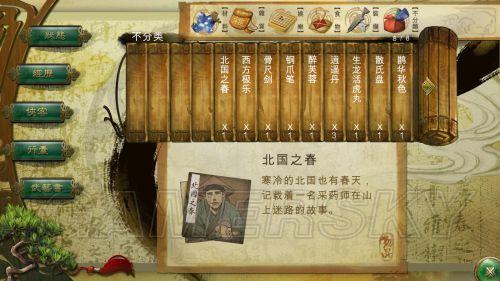 狀態
經歷
俠客
行囊
武藝書
不分类
8/8
鹊华秋色 X1
散氏盘 X1
生龙活虎丸 X1
逍遥丹 X3
醉芙蓉 X1
钢爪笔 X1
骨尺剑 X1
西方极乐 X1
北国之春 X1
北国之春
北国之春
寒冷的北国也有春天,
记载着一名采药师在山
上迷路的故事。
GAMERSKY